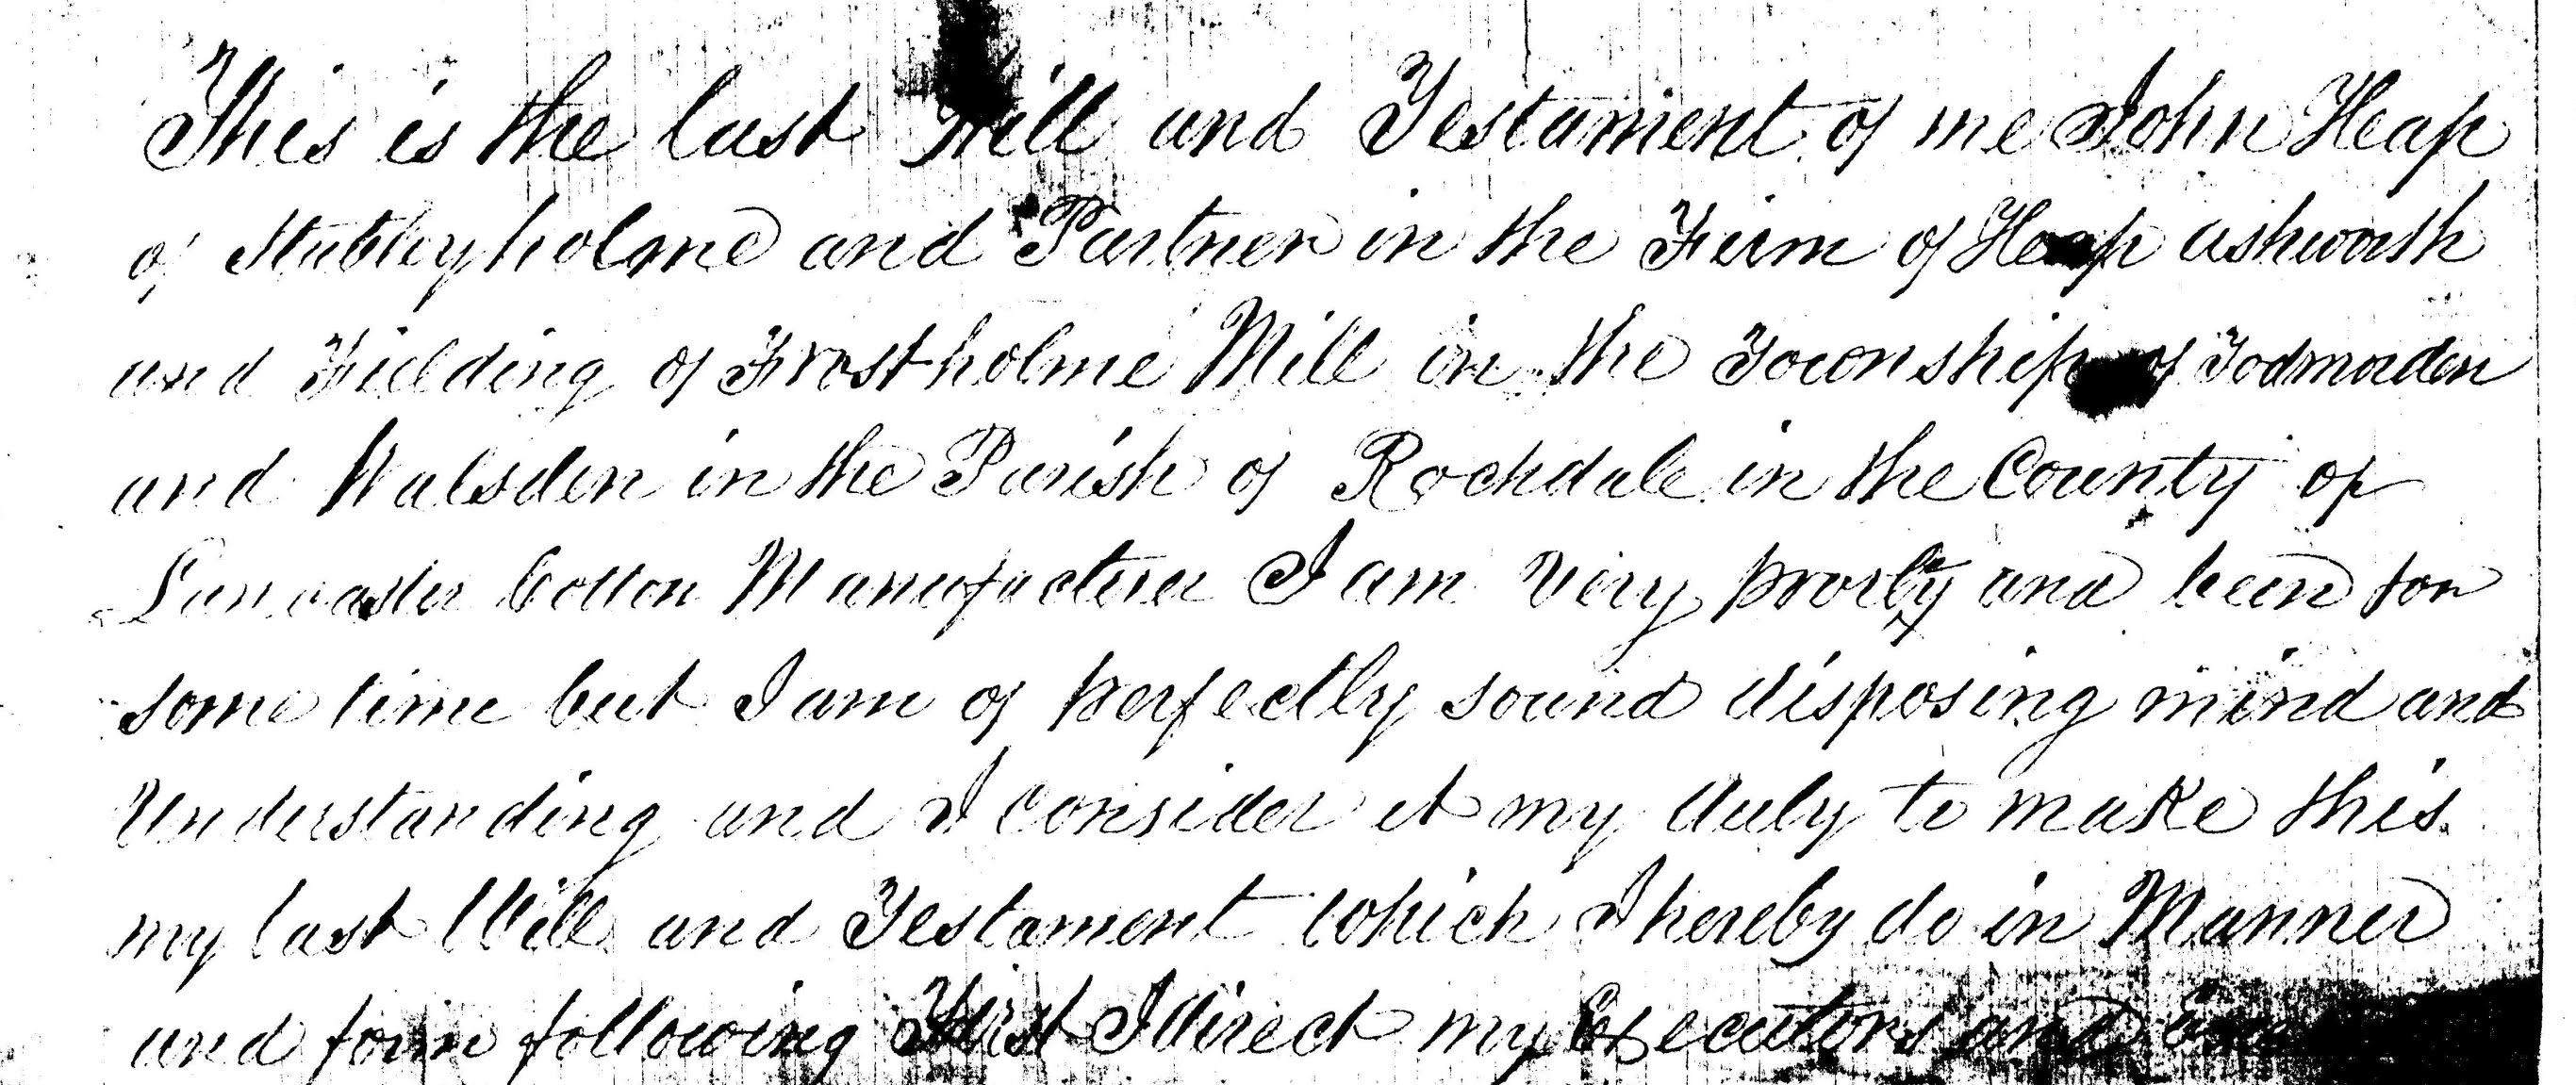 This is the last Will and Testament of me John Heap
of Stubleyholme and Partner in the Firm of Heap Ashworth
and Fielding of Frostholme Mill in the Township of Todmorden
and Walsden in the Parish of Rochdale in the County of
Lancaster Cotton Manufacturer I am very poorly and been for
some time but I am of perfectly sound disposing mind and
Understanding and I consider it my duty to make this
my last Will and Testament which I hereby do in Manner
and form following First I direct my Executors and